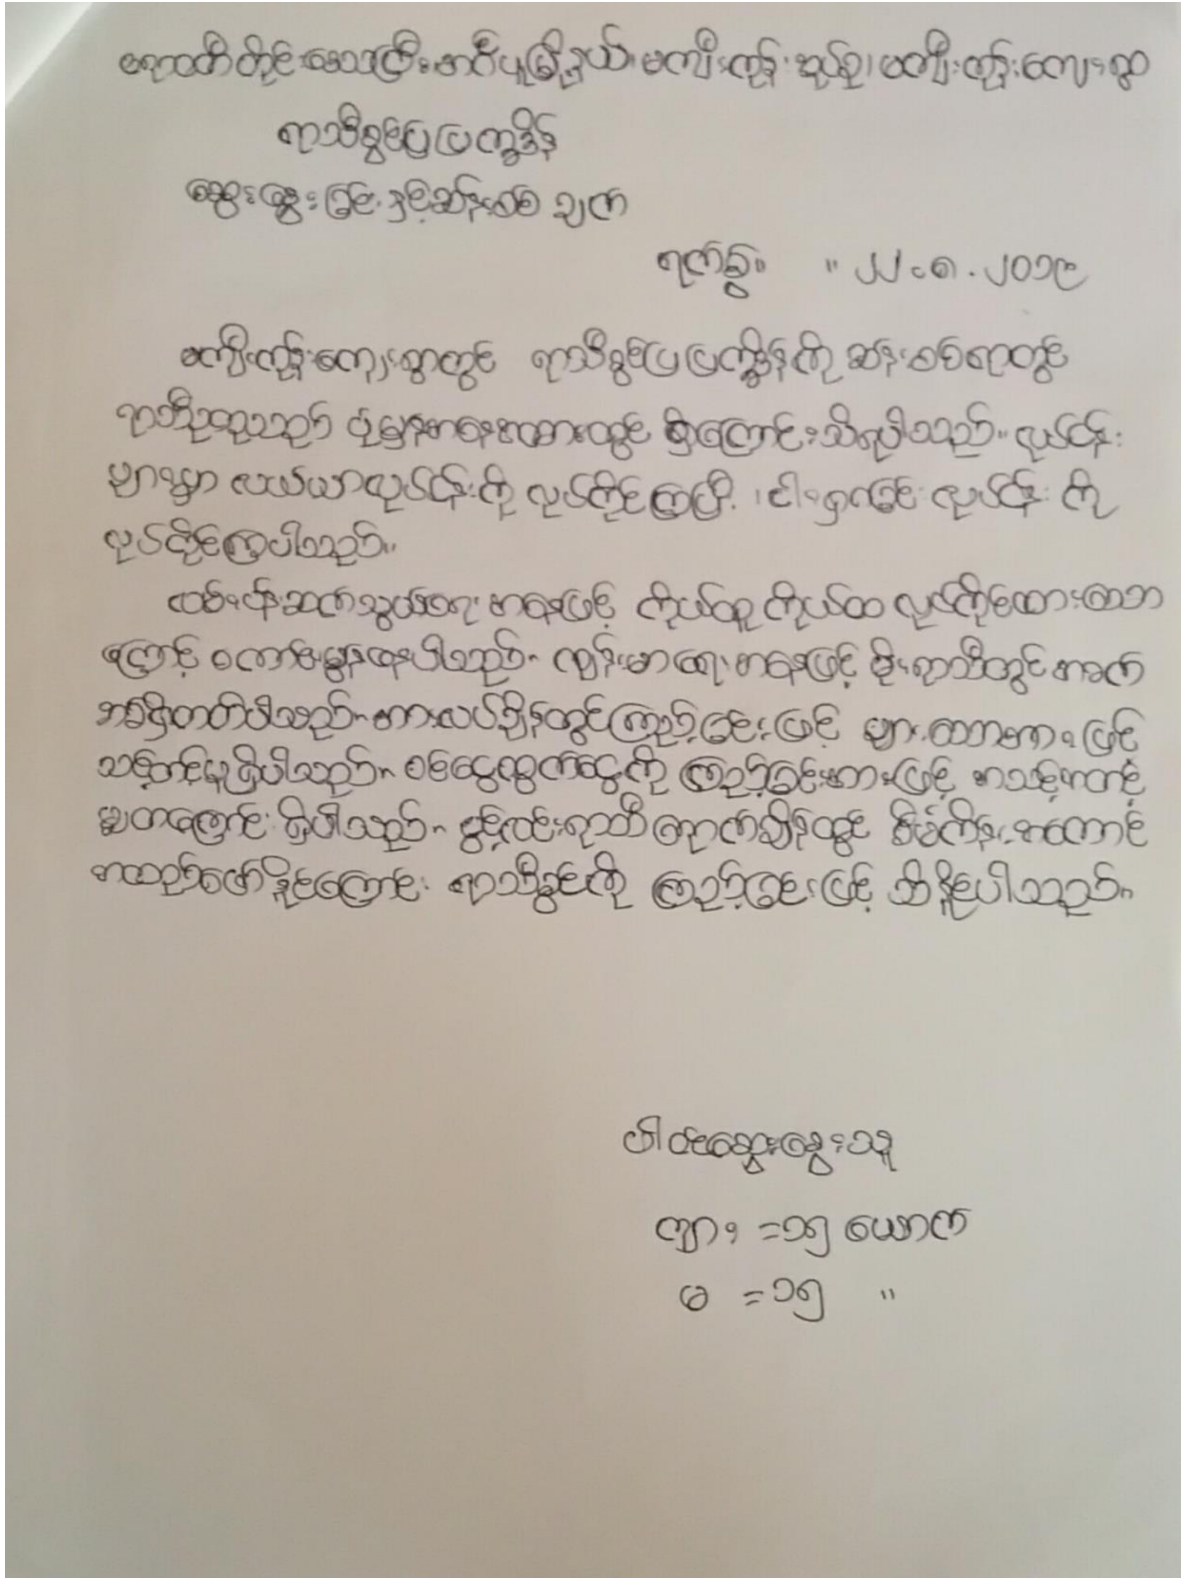 ဧရာဝတီတိုင်းဒေသကြီး၊ အင်္ဂပူမြို့နယ်၊ မကျီးကုန်းအုပ်စု၊ မကျီးကုန်းကျေးရွာ
ရာသီခွင်ပြပြက္ခဒိန်
ဆွေးနွေးခြင်းနှင့်ဆန်းစစ်ချက်
ရက်စွဲ။ ။ ၂၂.၈.၂၀၁၉
မကျီးကုန်းကျေးရွာတွင် ရာသီခွင်ပြပြက္ခဒိန်ကို ဆန်းစစ်ရာတွင်
ရာသီဥတုသည် ပုံမှန်အနေအထားတွင် ရှိကြောင်းသိရပါသည်။ လုပ်ငန်း
များမှာ လယ်ယာလုပ်ငန်းကို လုပ်ကိုင်ကြပြီး၊ ငါးရှာခြင်းလုပ်ငန်းကို
လုပ်ကိုင်ကြပါသည်။
လမ်းပန်းဆက်သွယ်ရေးအနေဖြင့် ကိုယ်ထူကိုယ်ထ လုပ်ကိုင်ထားသော
ကြောင့် ကောင်းမွန်နေပါသည်။ ကျန်းမာရေးအနေဖြင့် မိုးရာသီတွင် အခက်
အခဲရှိတတ်ပါသည်။ အားလပ်ချိန်တွင်ကြည့်ခြင်းဖြင့် များသောအားဖြင့်
သင့်တင့်မှုရှိပါသည်။ ဝင်ငွေထွက်ငွေကို ကြည့်ခြင်းအားဖြင့် အသင့်အတင့်
မျှတကြောင်းရှိပါသည်။ ပွင့်လင်းရာသီရောက်ချိန်တွင် စီမံကိန်းအကောင်
အထည်ဖော်နိုင်ကြောင်း ရာသီခွင်ကို ကြည့်ခြင်းဖြင့် သိနိုင်ပါသည်။
ပါဝင်ဆွေးနွေးသူ
ကျား = ၁၅ ယောက်
မ = ၁၅ "